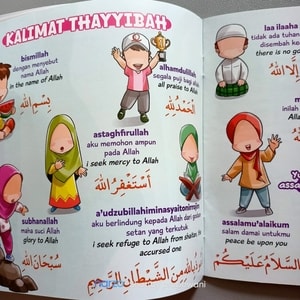 KALIMAT THAYYIBAH
bismillah
dengan menyebut
nama Allah
in the name of Allah
بِسْمِ اللهِ
alhamdulillah
segala puji bagi
all praise to Allah
اَلْحَمْدُ لِلّٰهِ
astaghfirullah
aku memohon ampun
pada Allah
i seek mercy to Allah
أَسْتَغْفِرُ اللهَ
subhanallah
maha suci Allah
glory to Allah
سُبْحَانَ اللهِ
a'udzubillahiminasyaitonirrajim
aku berlindung kepada Allah dari godaan
setan yang terkutuk
i seek refuge to Allah from shaitan, the
accursed one
بِاللهِ مِنَ الشَّيْطَانِ الرَّجِيْمِ
laa ilaaha
tidak ada tuhan
disembah ke
there is no go
إِلَّا اللهُ
inilah
Allah
assalamu'alaikum
salam damai untukmu
peace be upon you
اَلسَّلَامُ عَلَيْكُمْ